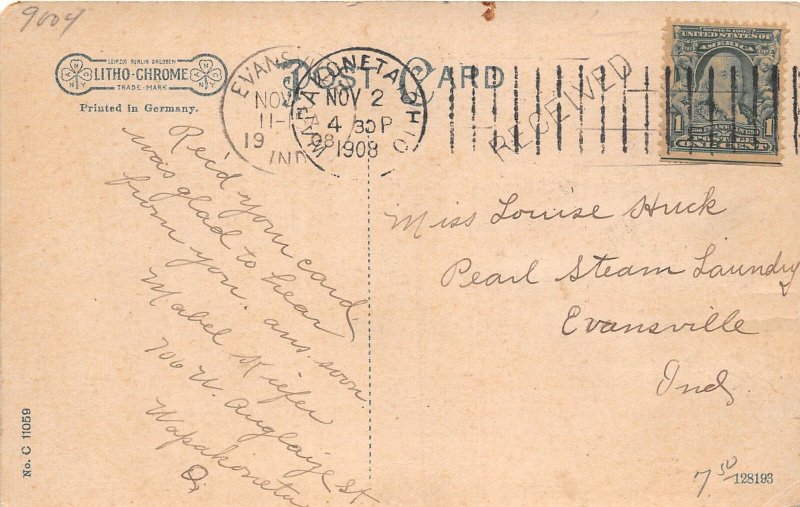 9004
LEIPZIG BERLIN DRESDEN
LITHO-CHROME
TRADE-MARK
Printed in Germany.
POST CARD
EVANS
NOV
11-
19 08
IND
WAPAKONETA OHIO
NOV 2
4 30P
1908
RECEIVED
SERIES 1902
UNITED STATES OF
AMERICA
FRANKLIN
POSTAGE
1 1
ONE CENT
Rec'd your card
was glad to hear
from you. ans. soon.
Mabel Kiefer
706 N. Auglaize St.
Wapakoneta
O.
Miss Louise Huck
Pearl Steam Laundry
Evansville
Ind,
No. C 11059
7.50
128193